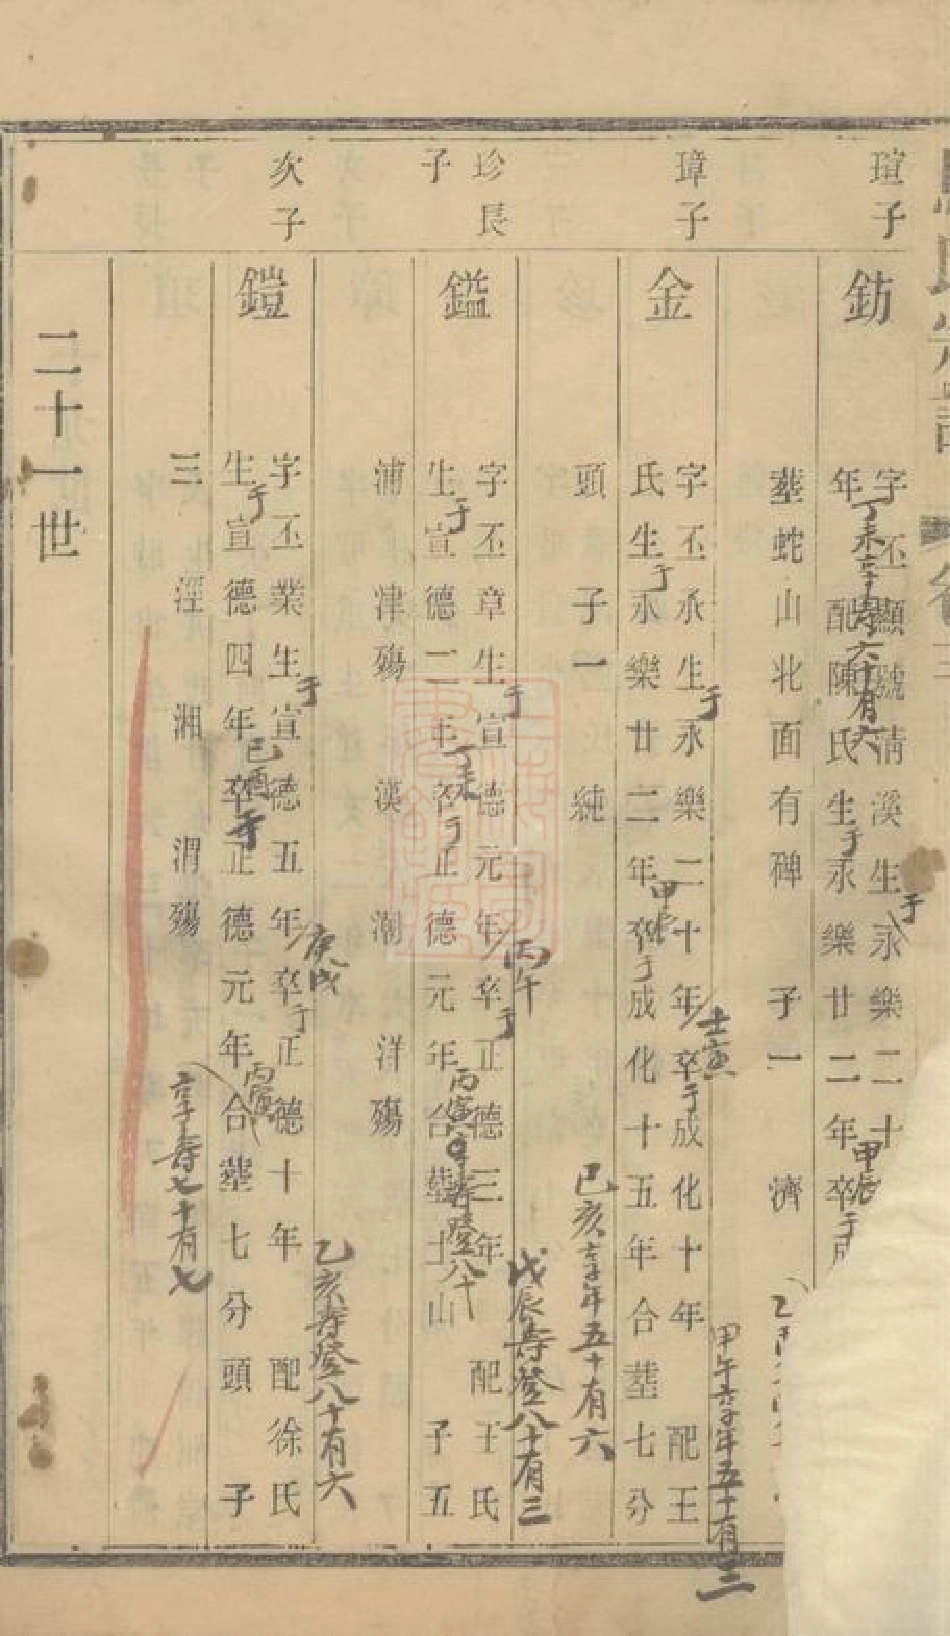 瑄子
鈁
字丕顯號清溪生于永樂二十
年丁未享壽六十有六
配陳氏生于永樂廿二年甲辰卒于
塟蛇山北面有碑 子一 濟
璋子
金
字丕承生于永樂二十年壬寅卒于成化十年甲午享年五十有三 配王
氏生于永樂廿二年甲辰卒于成化十五年己亥享年五十有六合塟七分
頭 子一 純
珍長子
鎰
字丕章生于宣德元年丙午卒于正德三年戊辰壽登八十有三 配王氏
生于宣德二年丁未卒于正德元年丙寅享壽登八十合塟土山 子五
浦 津殤 漢 潮 洋殤
次子
鎧
字丕業生于宣德五年庚戌卒于正德十年乙亥壽登八十有六 配徐氏
生于宣德四年己酉卒于正德元年丙寅享壽七十有七合塟七分頭 子
三 涇 湘 渭殤
二十一世